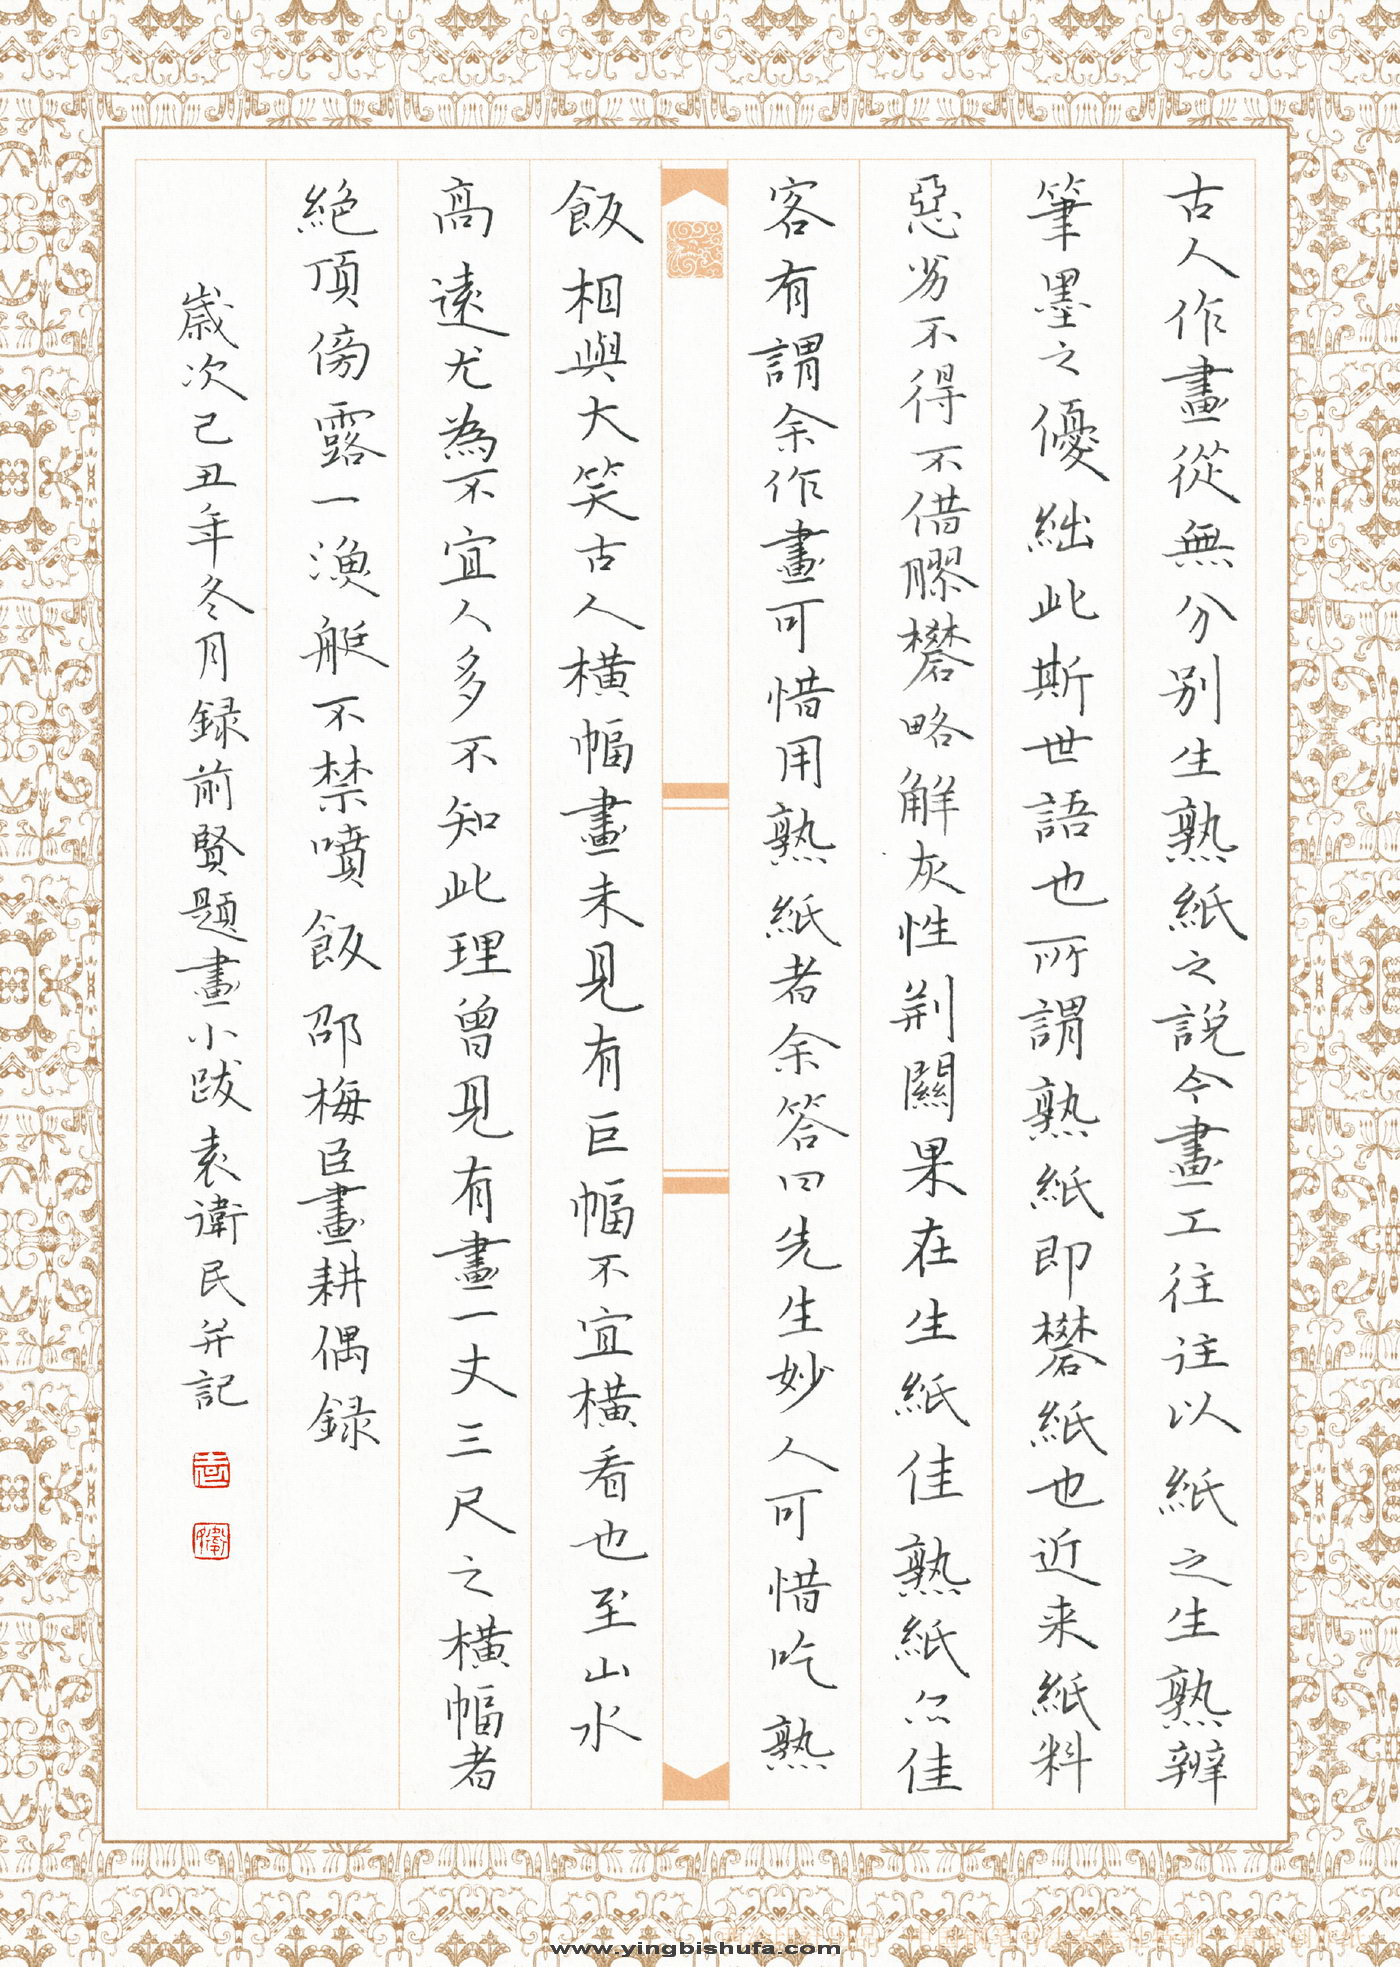 古人作畫從無分別生熟紙之說今畫工往往以紙之生熟辨
筆墨之優絀此斯世語也所謂熟紙即礬紙也近来紙料
惡劣不得不借膠礬略解灰性荆關果在生紙佳熟紙尒佳
客有謂余作畫可惜用熟紙者余答曰先生妙人可惜吃熟
飯相與大笑古人橫幅畫未見有巨幅不宜橫看也至山水
高遠尤為不宜人多不知此理曾見有畫一丈三尺之橫幅者
絶頂傍露一漁艇不禁噴飯邵梅臣畫耕偶録
歲次己丑年冬月録前賢題畫小跋袁衛民并記
www.yingbishufa.com